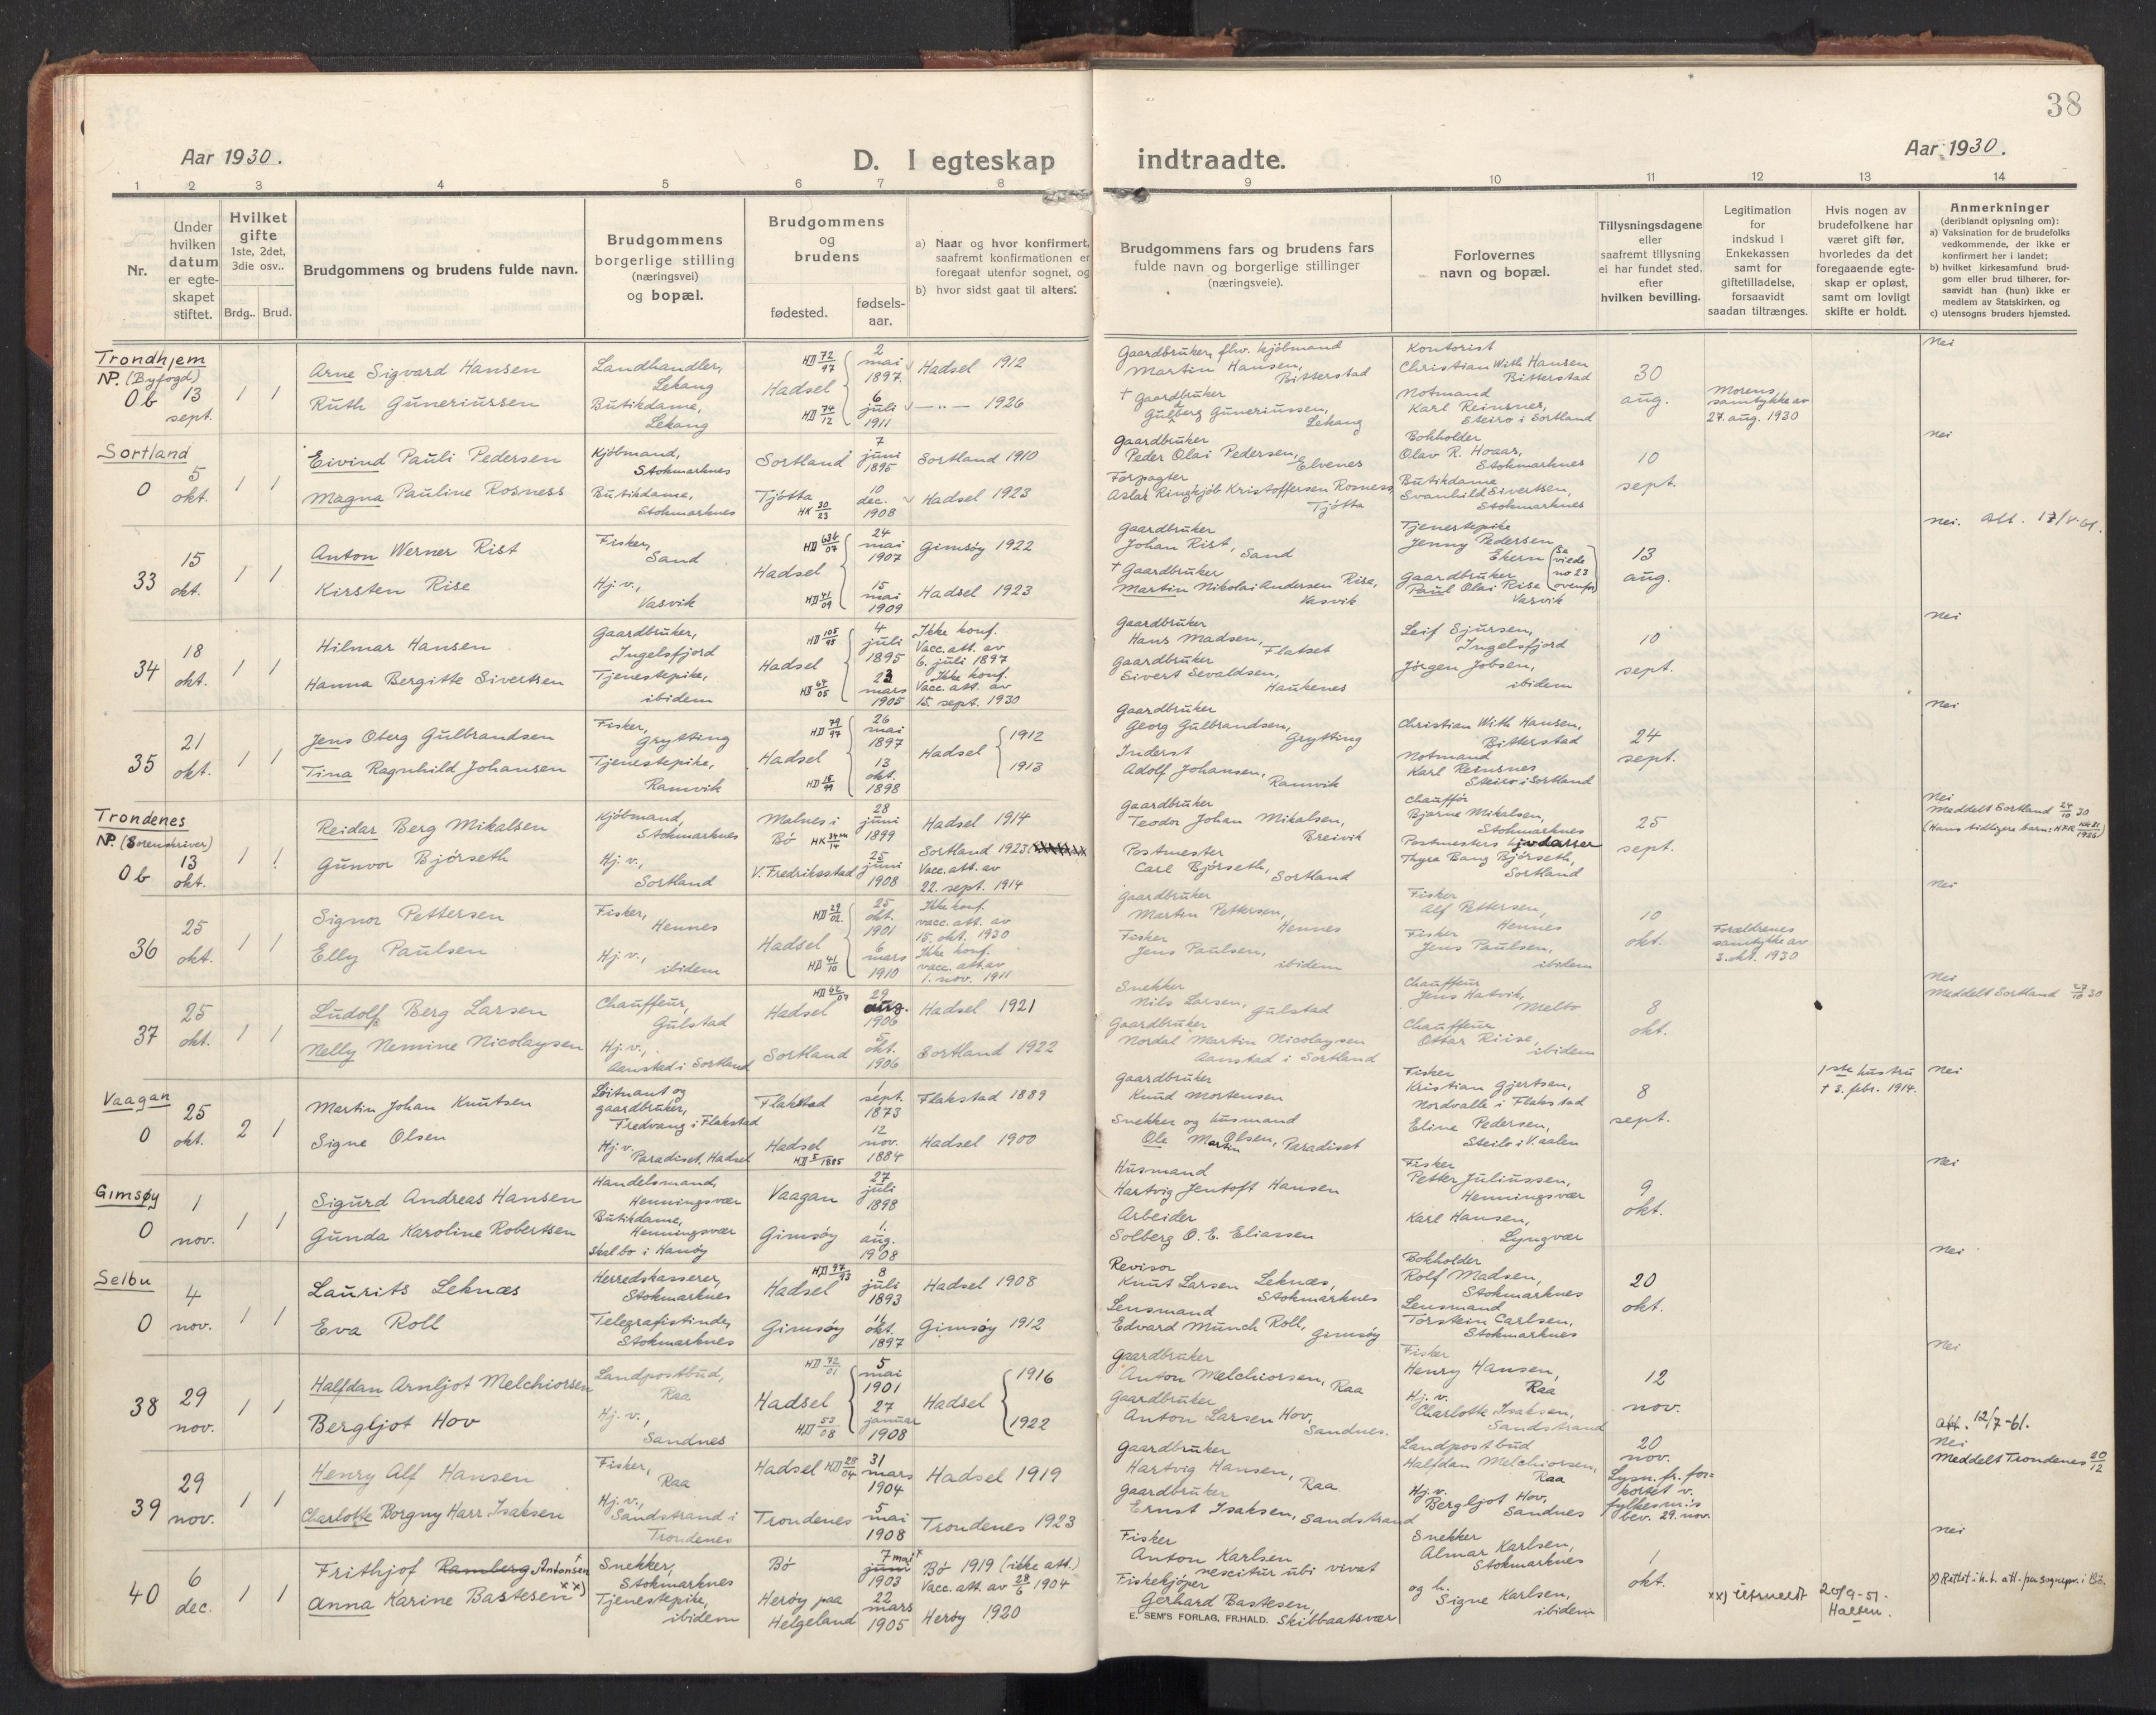 38
Aar 1930.
D. I egteskap indtraadte.
Aar 1930.
1 2 3 4 5 6 7 8 9 10 11 12 13 14
Nr.
Under hvilken datum er egteskapet stiftet.
Hvilket gifte
1ste, 2det, 3die osv..
Brdg.. Brud.
Brudgommens og brudens fulde navn.
Brudgommens borgerlige stilling (næringsvei) og bopæl.
Brudgommens og brudens
fødested.
fødselsaar.
a) Naar og hvor konfirmert, saafremt konfirmationen er foregaat utenfor sognet, og
b) hvor sidst gaat til alters.
Brudgommens fars og brudens fars fulde navn og borgerlige stillinger (næringsveie).
Forlovernes navn og bopæl.
Tillysningsdagene eller saafremt tillysning ei har fundet sted. efter hvilken bevilling.
Legitimation for indskud i Enkekassen samt for giftetilladelse, forsaavidt saadan tiltrænges.
Hvis nogen av brudefolkene har været gift før, hvorledes da det foregaaende egteskap er opløst, samt om lovligt skifte er holdt.
Anmerkninger
(deriblandt oplysning om):
a) Vaksination for de brudefolks vedkommende, der ikke er konfirmert her i landet;
b) hvilket kirkesamfund brudgom eller brud tilhører, forsaavidt han (hun) ikke er medlem av Statskirken, og
c) utensogns bruders hjemsted.
Trondhjem
NP. (Byfogd)
Ob 13 sept. 1 1
Arne Sigvard Hansen
Ruth Guneriussen
Landhandler, Lekang
Butikdame, Lekang
HD 72/97 Hadsel HD 74/12
2 mai 1897
6 juli 1911
Hadsel 1912
—„— 1926
Gaardbruker, fhv. kjøbmand
Martin Hansen, Bitterstad
† Gaardbruker
Gulberg Guneriussen, Lekang
Kontorist
Christian With Hansen
Bitterstad
Notmand
Karl Reinsnes,
Steiro i Sortland
30 aug.
Morens samtykke av 27. aug. 1930
Nei
Sortland
0 5 okt. 1 1
Eivind Pauli Pedersen
Magna Pauline Rosness
Kjøbmand, Stokmarknes
Butikdame, Stokmarknes
Sortland
Tjøtta HK 30/23
7 juni 1895
10 dec. 1908
Sortland 1910
Hadsel 1923
Gaardbruker
Peder Olai Pedersen, Elvenes
Forpagter
Aslak Ringkjøb Kristoffersen Rosness,
Tjøtta
Bokholder
Olav R. Hoaas,
Stokmarknes
Butikdame
Svanhild Sivertsen,
Stokmarknes
10 sept.
Nei
33 15 okt. 1 1
Anton Werner Rist
Kirsten Rise
Fisker, Sand
Hj. v., Vasvik
Hadsel HD 41/09
24 mai 1907
15 mai 1909
Gimsøy 1922
Hadsel 1923
Gaardbruker
Johan Rist, Sand
† Gaardbruker
Martin Nikolai Andersen Rise,
Vasvik
Tjenestepike
Jenny Pedersen
Ekern (se viede no 23 ovenfor)
Gaardbruker
Paul Olai Rise
Vasvik
13 aug.
Nei. Att. 17/V-61.
34 18 okt. 1 1
Hilmar Hansen
Hanna Bergitte Sivertsen
Gaardbruker, Ingelsfjord
Tjenestepike, ibidem
HD 105/95 Hadsel HD 64/05
4 juli 1895
23 mars 1905
Ikke konf. Vacc. att. av 6. juli 1897
Ikke konf. Vacc. att. av 15. sept. 1930
Gaardbruker
Hans Madsen, Flatset
Gaardbruker
Sivert Sevaldsen, Haukenes
Leif Sjursen,
Ingelsfjord
Jørgen Jobsen,
ibidem
10 sept.
Nei
35 21 okt. 1 1
Jens Oberg Gulbrandsen
Tina Ragnhild Johansen
Fisker, Grytting
Tjenestepike, Ramvik
HD 79/97 Hadsel HD 15/99
26 mai 1897
13 okt. 1898
Hadsel 1912 1913
Gaardbruker
Georg Gulbrandsen, Grytting
Inderst
Adolf Johansen, Ramvik
Christian With Hansen,
Bitterstad
Notmand
Karl Reinsnes
Steiro i Sortland
24 sept.
Nei
Trondenes
NP. (Sorenskriver)
Ob 13 okt. 1 1
Reidar Berg Mikalsen
Gunvor Bjørseth
Kjøbmand, Stokmarknes
Hj. v., Sortland
Malnes i Bø
V. Fredrikstad
28 juni 1899
25 juni 1908
Hadsel 1914
Sortland 1923
Vacc. att. av 22. sept. 1914
Gaardbruker
Teodor Johan Mikalsen,
Breivik
Postmester
Carl Bjørseth, Sortland
Chauffør
Bjarne Mikalsen,
Stokmarknes
Thyra Bang Bjørseth,
Sortland
25 sept.
Nei
Meddelt Sortland 24/10 30
36 25 okt. 1 1
Signor Pettersen
Elly Paulsen
Fisker, Hennes
Hj. v., ibidem
HD 29/02 Hadsel HD 41/10
25 okt. 1901
6 mars 1910
Ikke konf. vacc. att. av 15. okt. 1930
Ikke konf. vacc. att. av 1. nov. 1911
Gaardbruker
Martin Pettersen,
Hennes
Fisker
Jens Paulsen,
ibidem
Fisker
Alf Pettersen,
Hennes
Fisker
Jens Paulsen,
ibidem
10 okt.
Forældrenes samtykke av 3. okt. 1930
Nei
37 25 okt. 1 1
Ludolf Berg Larsen
Nelly Nemine Nicolaysen
Chauffeur, Gulstad
Hj. v., Aanstad i Sortland
Hadsel
Sortland
29 aug. 1906
5 okt. 1906
Hadsel 1921
Sortland 1922
Snekker
Nils Larsen, Gulstad
Gaardbruker
Nordal Martin Nicolaysen
Aanstad i Sortland
Chauffeur
Jens Hatvik,
Melbo
Chauffeur
Ottar Riise,
ibidem
8 okt.
Nei
Meddelt Sortland 27/10 30
Vaagan
0 25 okt. 2 1
Martin Johan Knutsen
Signe Olsen
Løitnant og gaardbruker, Fredvang i Flakstad
Hj. v. Paradiset, Hadsel
Flakstad
Hadsel HD 5/1885
1 sept. 1873
12 nov. 1884
Flakstad 1889
Hadsel 1900
Gaardbruker
Knud Mortensen
Snekker og husmand
Ole Martin Olsen, Paradiset
Fisker
Kristian Gjertsen,
Nordvalle i Flakstad
Eline Pedersen,
Steilo i V.aalen
8 sept.
1ste hustru † 3. febr. 1914.
Nei
Gimsøy
0 1 nov. 1 1
Sigurd Andreas Hansen
Gunda Karoline Robertsen
Handelsmand, Henningsvær
Butikdame, Henningsvær
Skal bo i Hanøy
Vaagan
Gimsøy
27 juli 1898
1. aug. 1908
Husmand
Hartvig Jentoft Hansen
Arbeider
Solberg O. E. Eliassen
Fisker
Petter Juliussen,
Henningsvær
Karl Hansen,
Lyngvær
9 okt.
Nei
Selbu
0 4 nov. 1 1
Laurits Leknæs
Eva Roll
Herredskasserer, Stokmarknes
Telegrafistinde, Stokmarknes
HD 97/93 Hadsel
Gimsøy
8 juli 1893
11 okt. 1897
Hadsel 1908
Gimsøy 1912
Revisor
Knut Larsen Leknæs,
Stokmarknes
Lensmand
Edvard Munch Roll,
Gimsøy
Bokholder
Rolf Madsen,
Stokmarknes
Lensmand
Torstein Carlsen,
Stokmarknes
20 okt.
Nei
38 29 nov. 1 1
Halfdan Arnljot Melchiorsen
Bergljot Hov
Landpostbud, Raa
Hj. v., Sandnes
HD 72/01 Hadsel HD 53/08
5 mai 1901
27 januar 1908
Hadsel 1916 1922
Gaardbruker
Anton Melchiorsen, Raa
Gaardbruker
Anton Larsen Hov,
Sandnes.
Fisker
Henry Hansen,
Raa
Hj. v.
Charlotte Isaksen,
Sandstrand
12 nov.
Nei
att. 12/7-61.
39 29 nov. 1 1
Henry Alf Hansen
Charlotte Borgny Harr Isaksen
Fisker, Raa
Hj. v., Sandstrand i Trondenes
Hadsel HD 28/04
Trondenes
31 mars 1904
5 mai 1908
Hadsel 1919
Trondenes 1923
Gaardbruker
Hartvig Hansen, Raa
Gaardbruker
Ernst Isaksen, Sandstrand
Landpostbud
Halfdan Melchiorsen,
Raa
Hj. v.
Bergljot Hov,
Sandnes
20 nov.
Lysn. fr. forkortet v. fylkesm:s bev. 29. nov.
Nei
Meddelt Trondenes 20/12
40 6 dec. 1 1
Frithjof Ramberg Antonsen
Anna Karine Bastesen xx)
Snekker, Stokmarknes
Tjenestepike, ibidem
Bø
Herøy paa Helgeland
7 mai juni 1903
22 mars 1905
Bø 1919 (ikke att.)
Vacc. att. av 28/6 1904
Herøy 1920
Fisker
Anton Karlsen
nescitur ubi vivat
Fiskekjøper
Gerhard Bastesen,
Skibbaatsvær
Snekker
Almar Karlsen,
Stokmarknes
og h.
Signe Karlsen,
ibidem
1 okt.
xx) Utmeldt 20/9-51
Halsen.
Nei
x) Rettet i h. t. att. fra sognepr. i Bø.
E. SEM'S FORLAG, FR.HALD.